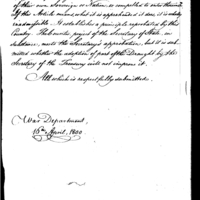 of their own Sovereign or Nation is compelled to noti
If this Article means, what it is apprehended it does, it is wholly
inadmissible. It establishes a principle reprobated by this
Country. The counter project of the Secretary of State, in
substance, meets the Secretary's approbation, but it is sub-
mitted whether the adoption of part of the Draught by the
Secretary of the Treasury will not improve it.
All which is respectfully submitted.
War Department,
16th April, 1800